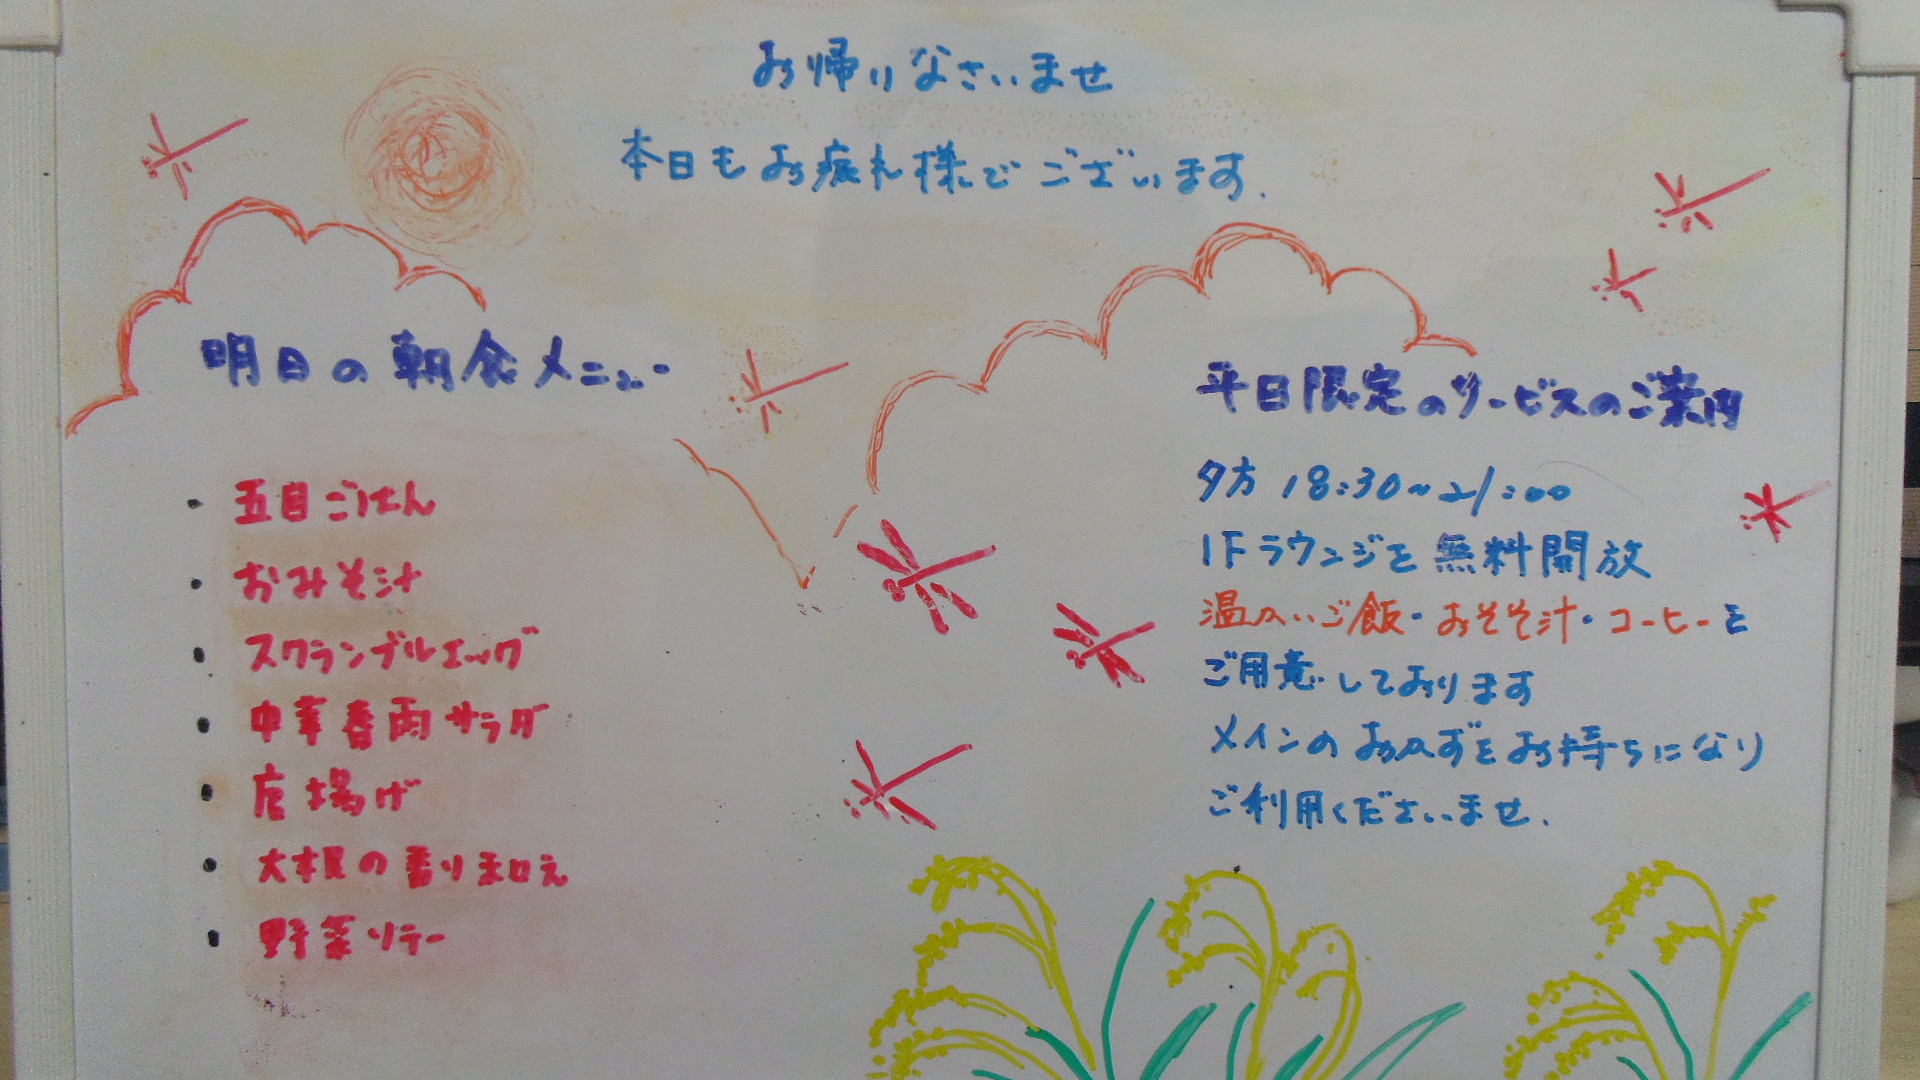 お帰りなさいませ
本日もお疲れ様でございます.
明日の朝食メニュー
・五目ごはん
・おみそ汁
・スクランブルエッグ
・中華春雨サラダ
・唐揚げ
・大根の香り和え
・野菜ソテー
平日限定のサービスのご案内
夕方 18:30~21:00
1Fラウンジを無料開放
温かいご飯・おそそ汁・コーヒーを
ご用意しております
メインのおかずをお持ちになり
ご利用くださいませ.